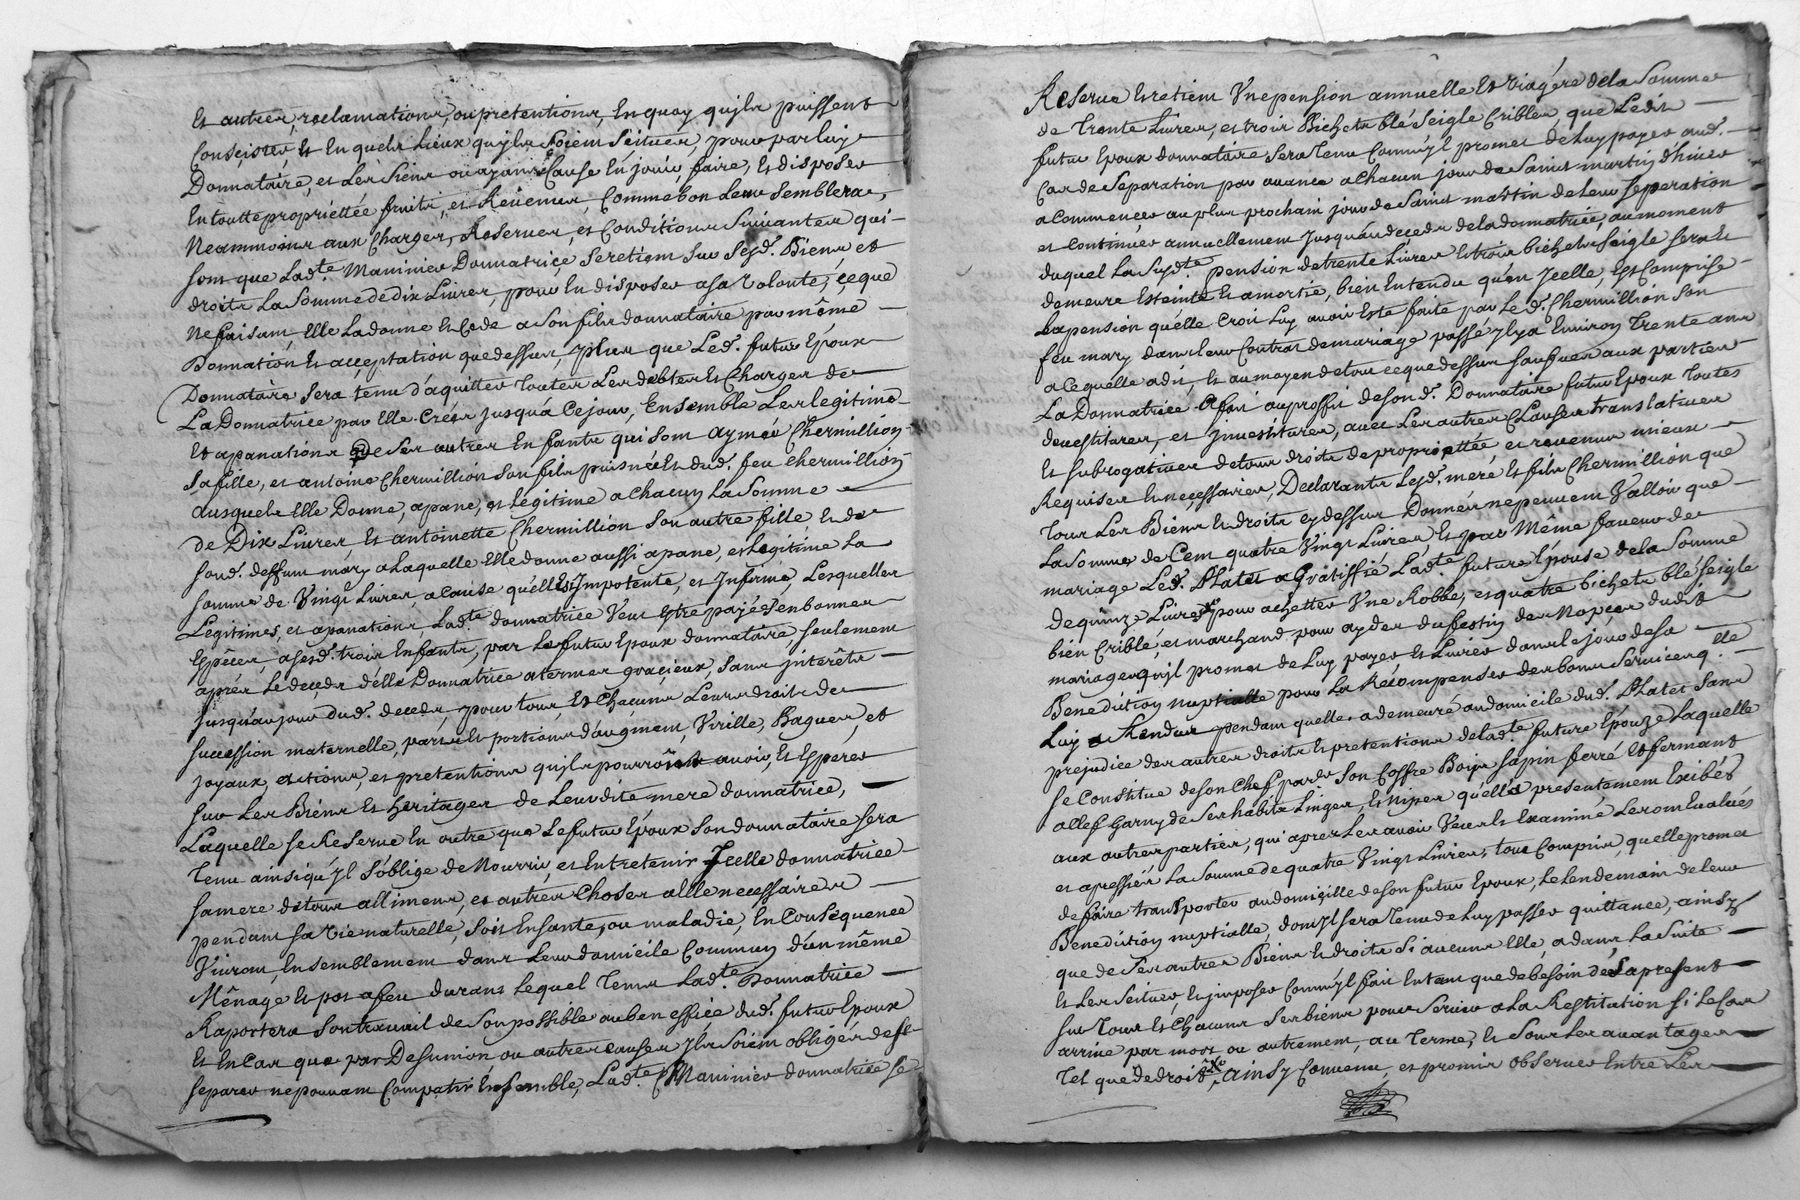 Et autres, reclamations, ou pretentions, En quoy quyls puissent
Consister, Et En quels Lieux quyls Soient Scitues, pour par luy
Donnataire, et Les Siens ou ayants Cause En jouir, faire, Et disposer
En toutte propriettée fruits, et Revenus, Comme bon Leur Semblera,
Neammoins aux Charges, Reserves, et Conditions Suivantes qui
Sont que Lad.te Maminier Donnatrice Se retient Sur Sesd. Biens et
droits La Somme de Dix Livres, pour En disposer a Sa Volonté, ce que
Ne faisant, Elle La donne Et Cede a Son fils donnataire par même
Donnation Et acceptation que dessus, plus que Led. futur Epoux
Donnataire Sera tenu d'aquitter Toutes Les debtes Et Charges de
La Donnatrice par Elle Créés Jusqu'a Ce jour, Ensemble Les legitimes
Et apanations De Ses autres Enfants qui Sont Aymée Chermillion
Sa fille, et antoine Chermillion Son fils puisnée Et dud. feu Chermillion
Ausquels Elle Donne, apane, et Legitime a Chacun La Somme
de Dix Livres, Et antoinette Chermillion Son autre fille Et de
Sond. deffunt mary a Laquelle Elle donne aussi apane, et Legitime La
Somme de Vingt Livres, a Cause qu'elle Est Impotente, et Infirme, Lesquelles
Legitimes, et apanations Lad.te donnatrice Veut Estre payées En bonnes
Espéces, a Sesd. trois Enfants, par Le futur Epoux donnataire Seulement
aprés Le deceds d'elle Donnatrice a termes gracieux, Sans jnterêts
Jusqu'au jour dud. deceds, pour tous, Et Chacuns Leurs droits de
Succession maternelle, parts Et portions d'augment, Virille, Bagues, et
Joyaux, actions, et pretentions qu'yls pourroint avoir, Et Esperer
Sur Les Biens Et heritages de Leurdite mere donnatrice,
Laquelle Se Reserve En outre que Le futur Epoux Son donnataire Sera
Tenu ainsi qu'yl S'oblige de Nourrir, et Entretenir Jcelle donnatrice
Sa mere de tous alliments, et autres Choses a Elle necessaires
pendant Sa Vie naturelle, Soit En Santé, ou maladie, En Conséquence
Vivront Ensemblement dans Leur domicile Commun d'un même
Ménage Et pot a feu durant Lequel Tems Lad.te Donnatrice
Raportera Son travail de Son possible au beneffice dud. futur Epoux
Et En Cas que par Desunion ou autres Causes Yls Soient obligés de Se
Separer ne pouvant Compatir Ensemble, Lad.te Maminier donnatrice Se
Reserve Et retient Vne pension annuelle Et Viagére de la Somme
de Trente Livres, et trois Bichets blé Seigle Cribles, que Ledit
futur Epoux donnataire Sera Tenu Comm'yl promet de Luy payer aud.
Cas de Separation par avance a Chacun jour de Saint martin d'hiver
a Commencer au plus prochain jour de Saint martin de Leur Seperation
et Continuer annuellement Jusqu'au deceds de la donnatrice, au moment
duquel La Susd.te pension de trente Livres Et trois bichets Seigle Sera Et
demeure Esteinte Et amortie, bien Entendu qu'en Jcelle, Est Comprise
La pension qu'elle Croit Luy avoir Esté faite par Led. Chermillion Son
feu mary dans leur Contrat de mariage passé Il y a Environ Trente ans
a Ce quelle a dit, Et au moyen de tout ce que dessus Sauf Vers aux parties
La Donnatrice a fait au proffit de Sond. Donnataire futur Epoux Toutes
devestitures, et jnvestitures, avec Les autres Clauses translatives
Et Subrogatives de tous droits de propriettée et revenus mieux
Requises Et necessaires, Declarants Lesd. mere Et fils Chermillion que
Tous Les Biens Et droits cy dessus Donnés ne peuvent Valloir que
La Somme de Cent quatre Vingt Livres Et par Même faveur de
mariage Led. Platet a Gratiffié Lad.te future Epouse de la Somme
de quinze Livres pour achetter Vne Robbe, et quatre bichets blé Seigle
bien Criblé, et marchand pour ayder au festin des Nopces dudit
mariage qu'yl promet de Luy payer Et Livrer dans le jour de Sa
Benediction nuptialle pour La Récompenser des bons Services q. Elle
Luy a Rendus pendant quelle a demeuré au domicile dud. Platet Sans
prejudice des autres droits Et pretentions de Lad.te future Epouze Laquelle
Se Constitue de Son Chef par.le Son Coffre Boys Sapin ferré Et fermant
a Clef Garny de Ses habits Linges, Et nipes qu'elle a presentement Exibés
aux autres parties, qui apres Les avoir Veus Et Examiné Les ont Evalués
et apressiés La Somme de quatre Vingt Livres, tout Compris, quelle promet
de faire transporter au domicille de Son futur Epoux, Le Lendemain de Leur
Benediction nuptialle, dont Il Sera Tenu de Luy passer quittance, ainsy
que de Ses autres Biens Et droits Si aucuns Elle a dans La Suite
Et Les Scituer, Et jmposer Comm'yl fait En tant que de besoin dés a present
Sur Tous Et Chacuns Ses biens pour Servir a La Restitution Si Le Cas
arrive par mort ou autrement, au Terme, Et Sous Les avantages
Tel que de droit, Ainsy Convenu, et promis observer Entre Les